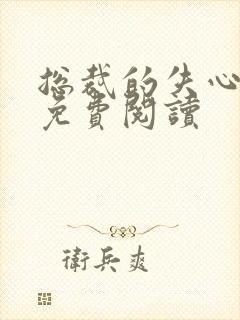 总裁的失心
免費閱讀
衛兵爽